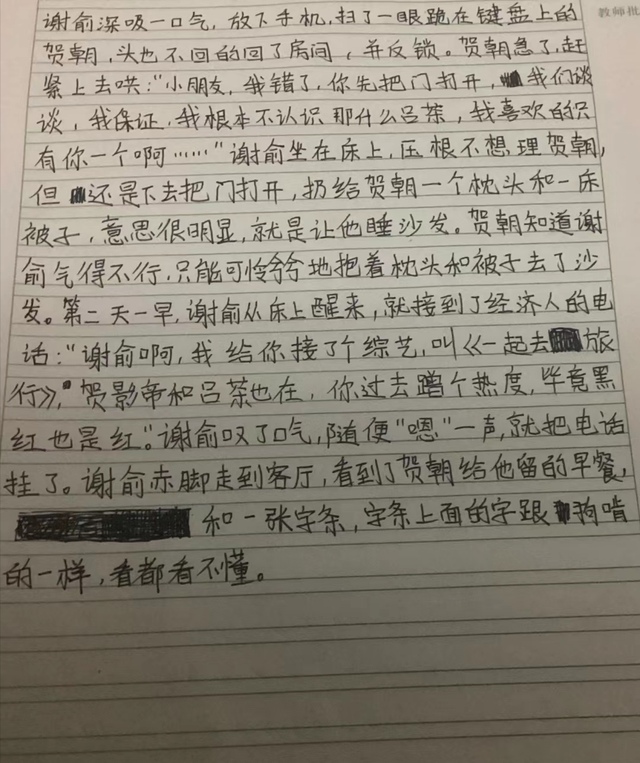 教师批
谢俞深吸一口气，放下手机，扫了一眼跪在键盘上的
贺朝，头也不回的回了房间，并反锁。贺朝急了，赶
紧上去哄："小朋友，我错了，你先把门打开，我们谈
谈，我保证，我根本不认识那什么吕茶，我喜欢的只
有你一个啊……"谢俞坐在床上，压根不想理贺朝，
但还是下去把门打开，扔给贺朝一个枕头和一床
被子，意思很明显，就是让他睡沙发。贺朝知道谢
俞气得不行，只能可怜兮兮地抱着枕头和被子去了沙
发。第二天一早，谢俞从床上醒来，就接到了经济人的电
话："谢俞啊，我给你接了个综艺，叫《一起去旅
行》，贺影帝和吕茶也在，你过去蹭个热度，毕竟黑
红也是红。"谢俞叹了口气，随便"嗯"一声，就把电话
挂了。谢俞赤脚走到客厅，看到了贺朝给他留的早餐，
和一张字条，字条上面的字跟狗啃
的一样，看都看不懂。